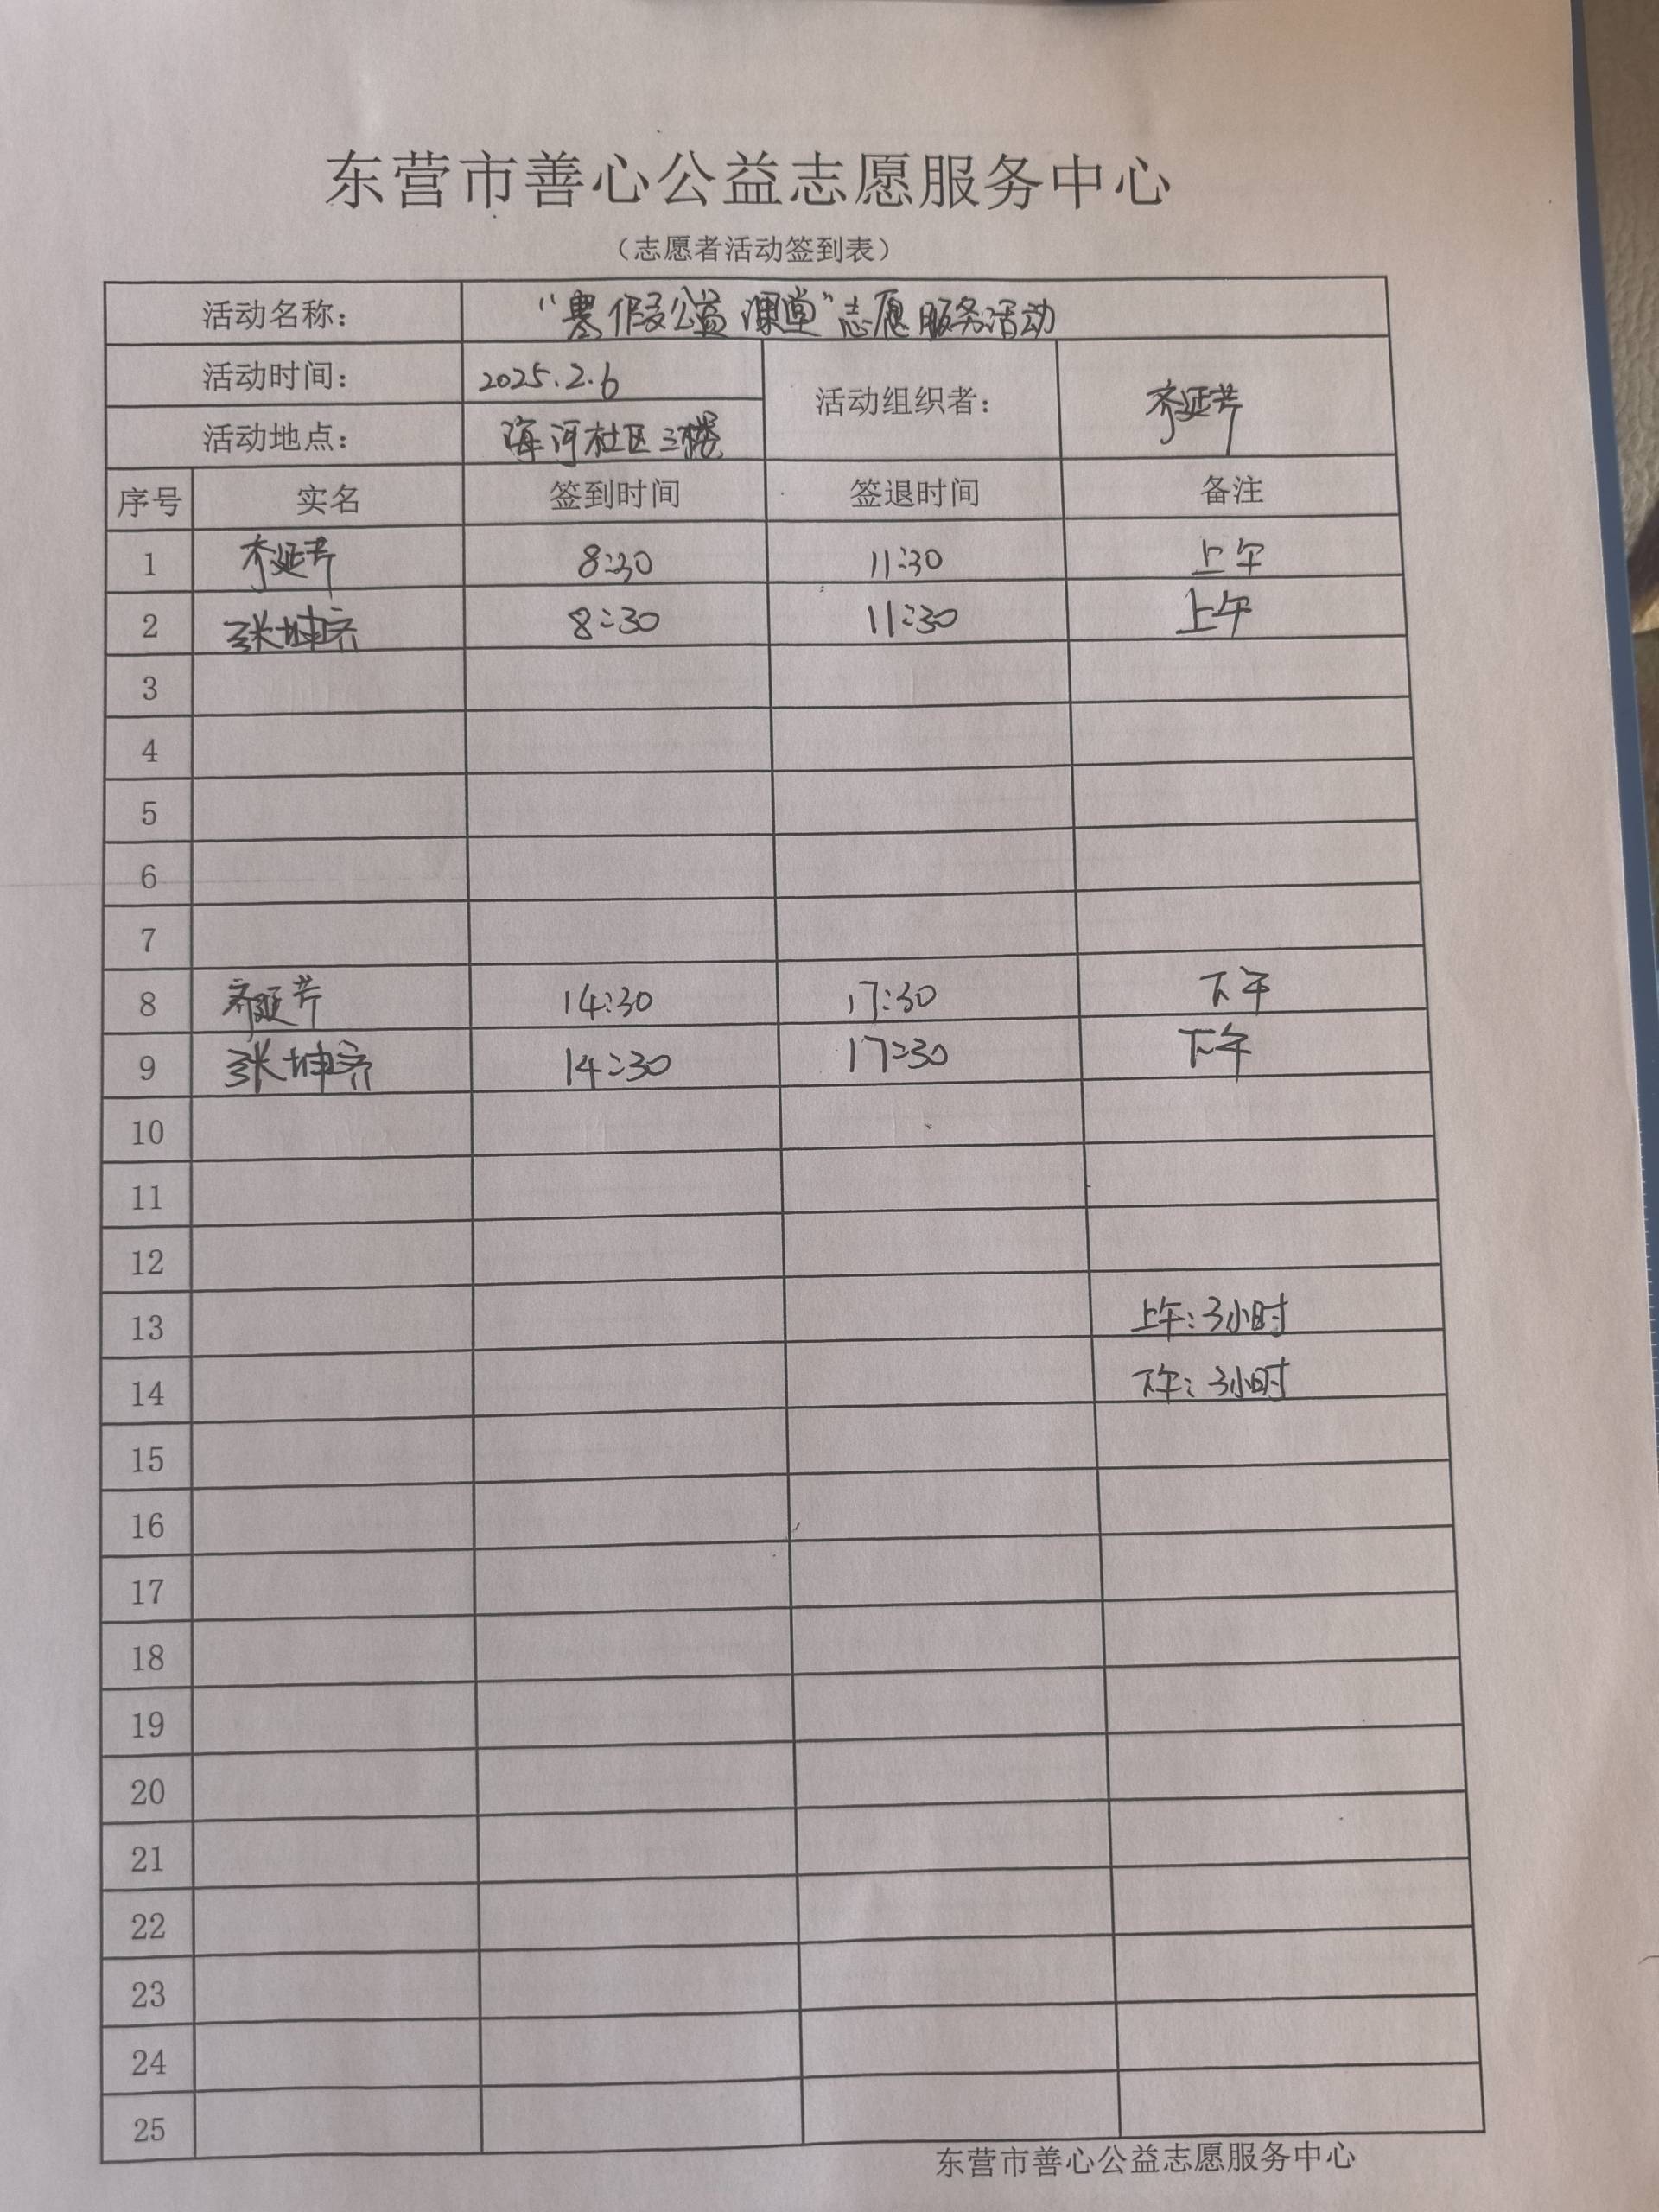 东营市善心公益志愿服务中心
（志愿者活动签到表）
活动名称： “寒假公益课堂”志愿服务活动
活动时间： 2025.2.6 活动组织者： 齐延芹
活动地点： 海河社区三楼
序号 实名 签到时间 签退时间 备注
1 齐延芹 8:30 11:30 上午
2 张坤齐 8:30 11:30 上午
3
4
5
6
7
8 齐延芹 14:30 17:30 下午
9 张坤齐 14:30 17:30 下午
10
11
12
13 上午：3小时
14 下午：3小时
15
16
17
18
19
20
21
22
23
24
25
东营市善心公益志愿服务中心